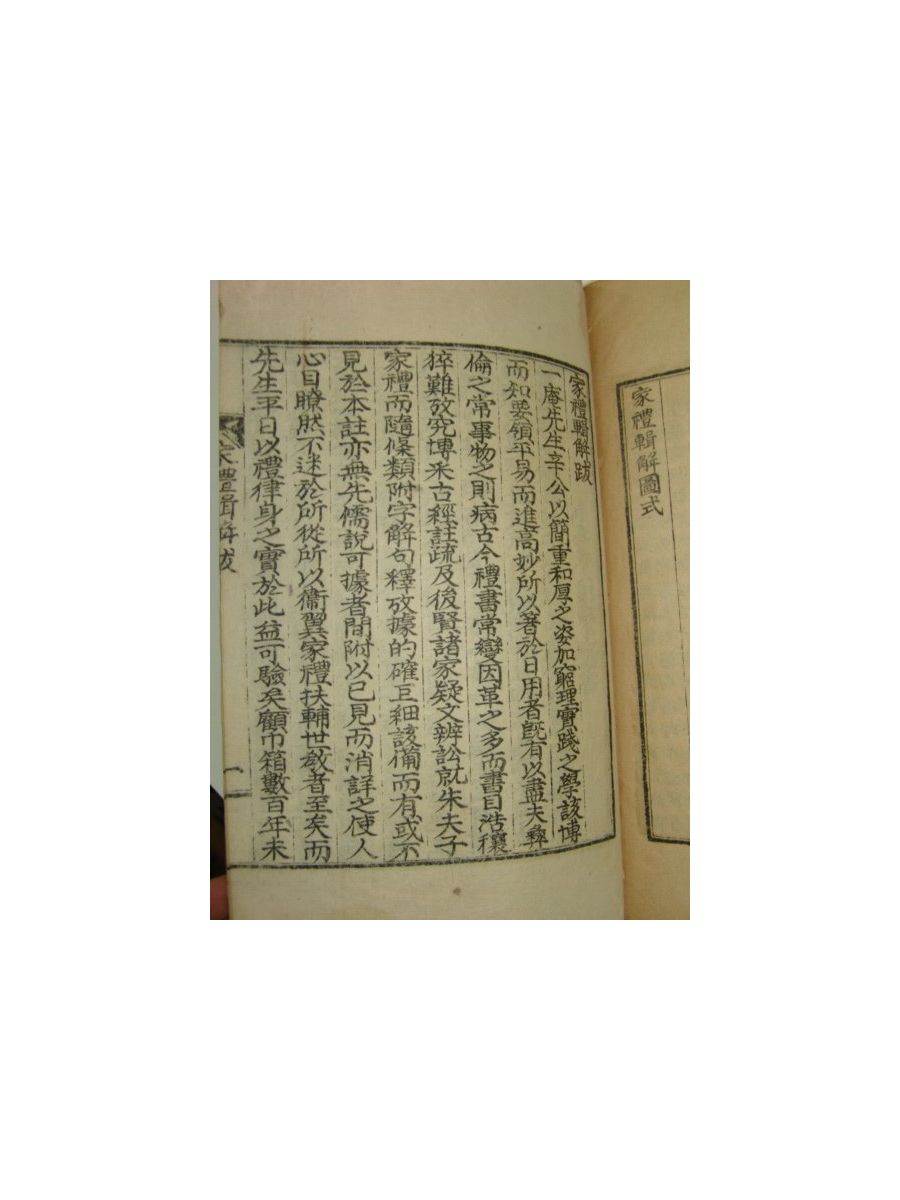 家禮輯解圖式
家禮輯解跋
一庵先生辛公以簡重和厚之姿加窮理實踐之學該博
而知要領平易而進高妙所以著於日用者旣有以盡夫彜
倫之常事物之則病古今禮書常變因革之多而書目浩穰
猝難攷究博采古經註疏及後賢諸家疑文辨訟就朱夫子
家禮而隨條類附字解句釋攷據的確巨細該備而有或不
見於本註亦無先儒說可據者間附以已見而消詳之使人
心目瞭然不迷於所從所以衞翼家禮扶輔世敎者至矣而
先生平日以禮律身之實於此益可驗矣顧巾箱數百年未
家禮輯解跋
一